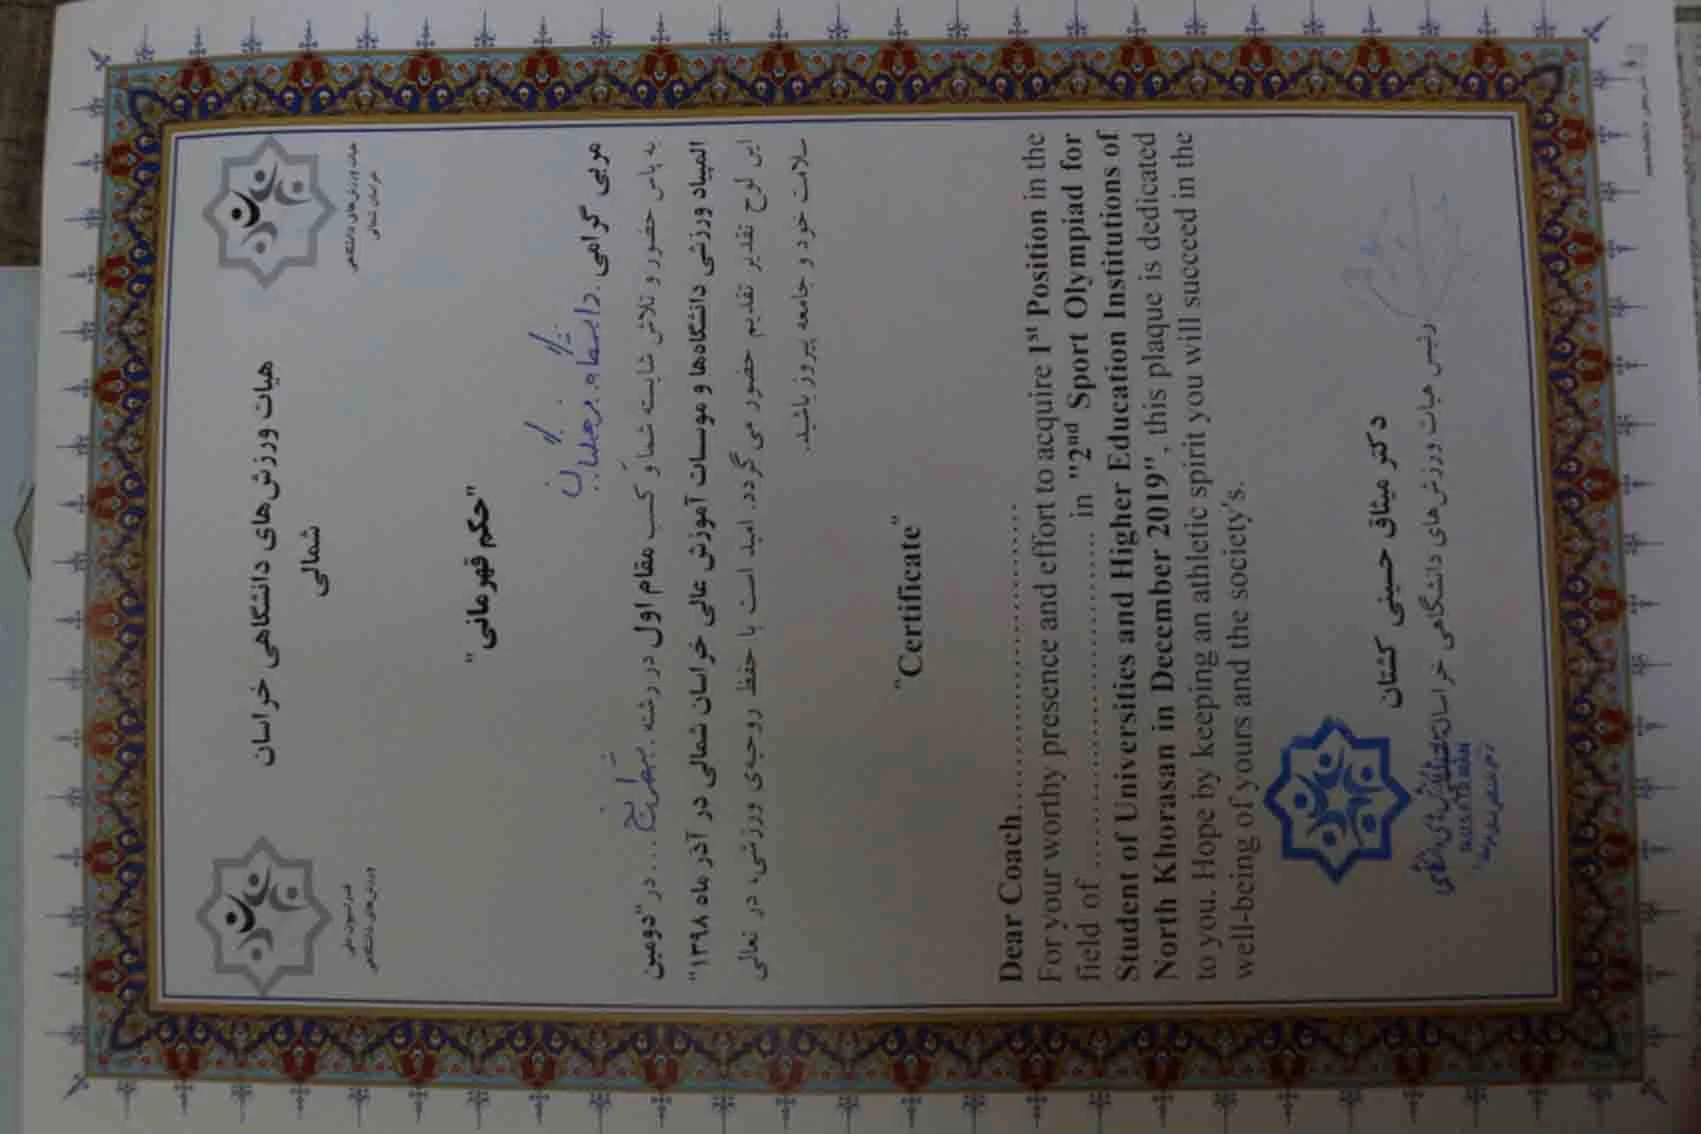 هیات ورزش‌های دانشگاهی خراسان
شمالی
هیات ورزش‌های دانشگاهی
خراسان شمالی
فدراسیون ملی
ورزش‌های دانشگاهی
"حکم قهرمانی"
مربی گرامی
به پاس حضور و تلاش شایسته شما و کسب مقام اول در رشته شطرنج در "دومین
المپیاد ورزشی دانشگاه‌ها و موسسات آموزش عالی خراسان شمالی در آذر ماه ۱۳۹۸"
این لوح تقدیر تقدیم حضور می گردد. امید است با حفظ روحیه‌ی ورزشی، در تعالی
سلامت خود و جامعه پیروز باشید.
"Certificate"
Dear Coach..............................
For your worthy presence and effort to acquire 1st Position in the
field of .............................. in "2nd Sport Olympiad for
Student of Universities and Higher Education Institutions of
North Khorasan in December 2019", this plaque is dedicated
to you. Hope by keeping an athletic spirit you will succeed in the
well-being of yours and the society's.
دکتر میثاق حسینی کشتان
رئیس هیات ورزش‌های دانشگاهی خراسان